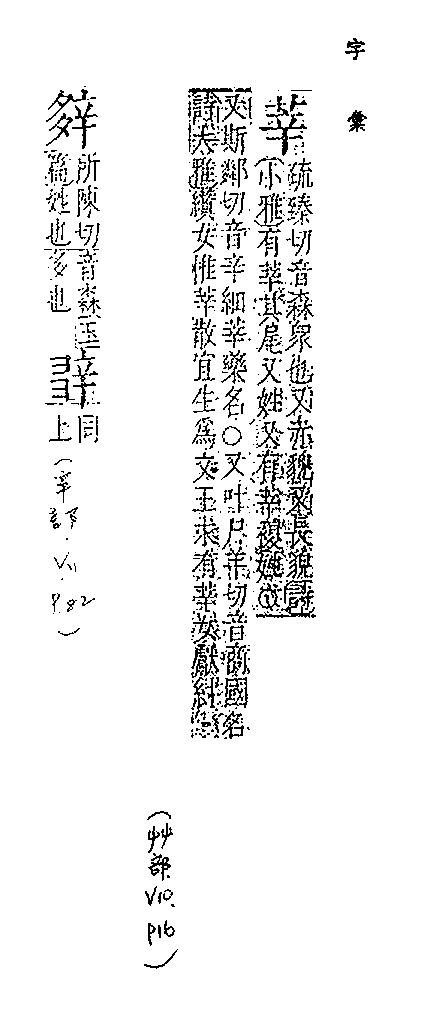 字彙
莘 疏臻切音森衆也又赤貌又長貌詩
小雅有莘其尾又姓又有莘複姓
又斯鄰切音辛細莘藥名○又叶尸羊切音商國名
詩大雅纘女惟莘散宜生爲文王求有莘女獻紂
(艸部.V10.P16)
所陳切音森玉
篇姓也多也
同
上
(辛部.V11.P82)